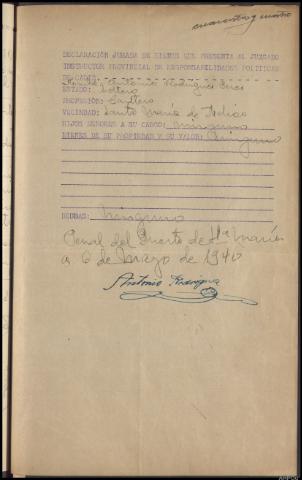 cuarenta y cuatro
DECLARACIÓN JURADA DE BIENES QUE PRESENTA AL JUZGADO
INSTRUCTOR PROVINCIAL DE RESPONSABILIDADES POLITICAS
DE CADIZ.
Antonio Rodriguez
ESTADO: Soltero
PROFESIÓN:
VECINDAD: Santa María de
HIJOS MENORES A SU CARGO: ninguno
BIENES DE SU PROPIEDAD Y SU VALOR: Ninguno
DEUDAS: ninguno
Penal del Puerto de Sta María
a 6 de Marzo de 1940
Antonio Rodriguez